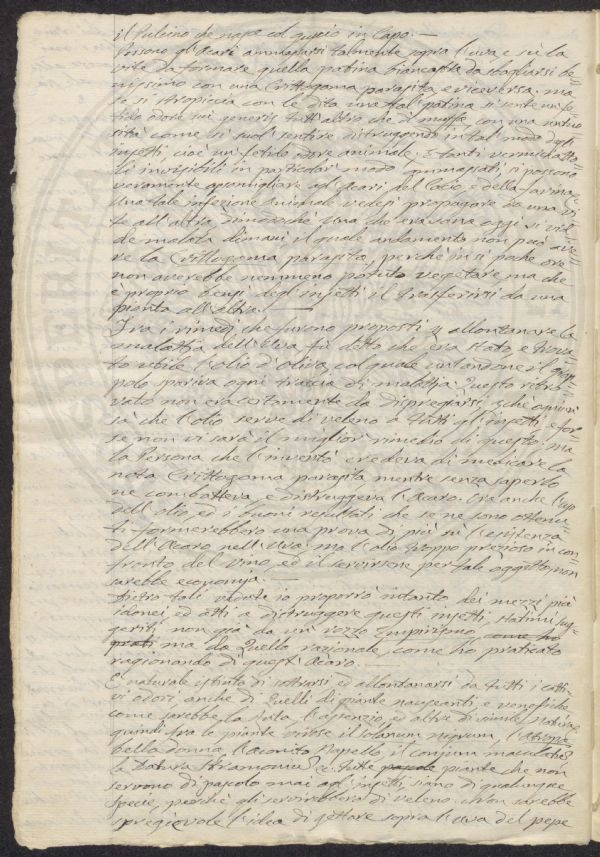 il Pulcino che nasce col guscio in Capo. —
Possono gl'Acari ammassarsi talmente sopra l'uva e sù la
vite da formare quella patina biancastra da sbagliarsi be-
nissimo con una Crittogama parasita e viceversa. ma
se si stropiccia con le dita una tal patina si sente un fe-
tido odore sui generis tutt'altro che il muffa con una untuo-
sità come si suol sentire distruggendo in tal modo degli
insetti, cioè un fetido odore animale. E tanti
invisibili in particolar modo ammassati, si possono
veramente assomigliare agl'Acari del Cacio, e della farina.
Una tale infezione animale vedesi propagare da una vi-
te all'altra, dimodochè una che era sana oggi si ve-
de malata dimani, il quale andamento non può ave-
re la Crittogama parasita, perchè in sì poche ore
non averebbe nemmeno potuto vegetare ma che
è proprio bensì degl'insetti il trasferirsi da una
pianta all'altra. —
Fra i rimedj che furono proposti p allontanare la
malattia dell'Uva fù detto che era stato, e trova-
to utile l'olio d'Oliva, col quale untandone il grap-
polo spariva ogni traccia di malattia. Questo ritro-
vato non era certamente da dispregiarsi, che ognun
sà che l'olio serve di veleno a tutti gl'insetti, e for-
se non vi sarà il miglior rimedio di questo; ma
la Persona che l'inventò credeva di medicare la
nota Crittogama parasita mentre senza saperlo
ne combatteva, e distruggeva l'Acaro. Ora anche l'uso
dell'olio ed i buoni resultati che se ne sono ottenu-
ti formerebbero una prova di più sù l'esistenza
dell'Acaro nell'Uva, ma l'olio troppo prezioso in con-
fronto del vino, ed il servirsene per tale oggetto, non
sarebbe economia.
Dietro tali vedute io proporrò intanto dei mezzi più
idonei, ed atti a distruggere questi insetti, statimi sug-
geriti, non già da un rozzo Empirismo, come ho
prati ma da Quello razionale, come ho praticato
ragionando di quest'Acaro.
E naturale istinto di sottrarsi ed allontanarsi da tutti i catti-
vi odori, anche di Quelli di piante nauseanti, e venefiche
come sarebbe la Ruta, l'assenzio, ed altre di simile natura
quindi fra le piante virose il Solanum nigrum, l'Atropa
bella donna, l'Aconito Napello il Conium maculatu
la Datura Stramoniu &c. tutte piante che non
servono di pascolo mai agl'insetti, siano di qualunque
Specie, perchè gli servirebbero di veleno. Non sarebbe
spregievole l'idea di gettare sopra l'uva del pepe